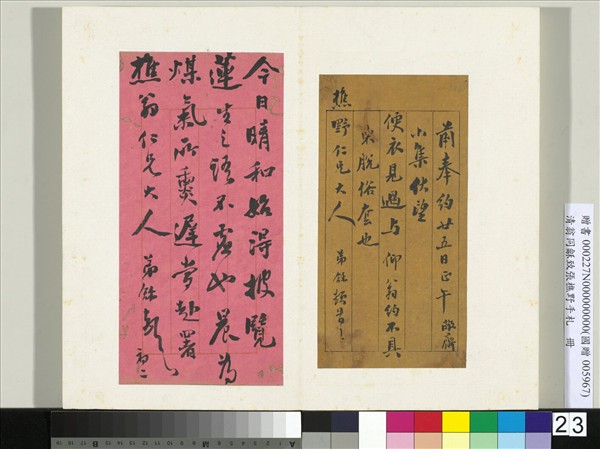 前奉約廿五日正午敝齋
小集伏望
便衣見過与仰翁約不具
脫俗套也
樵野仁兄大人 弟龢頓首
今日晴和始得披覽
蓮生之語不虛也晨為
煤氣所熏遲當赴署
樵翁仁兄大人 弟龢頓 初二
贈書 000227N000000000(國贈 005967)
清翁同龢致張樵野手札 冊
23